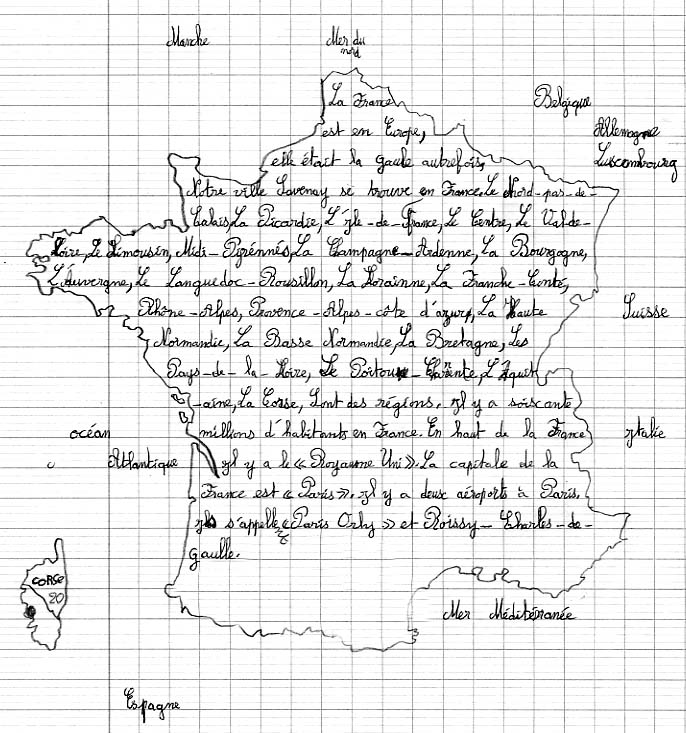 Manche
Mer du
nord
La France
Belgique
est en Europe,
Allemagne
elle était la gaule autrefois,
Luxembourg
Notre ville Savenay se trouve en France. Le Nord-pas-de-
Calais, La Picardie, L'île-de-France, Le Centre, Le Val de-
Loire, Le Limousin, Midi-Pyrénnés, La Champagne-Ardenne, La Bourgogne,
L'Auvergne, Le Languedoc-Roussillon, La Lorainne, La Franche-Conté,
Rhône-Alpes, Provence-Alpes-côte d'azur, La Haute
Suisse
Normandie, La Basse Normandie, La Bretagne, Les
Pays-de-la-Loire, Le Poitou-Charente, L'Aquit
-aine, La Corse, Sont des régions. Il y a soiscante
océan
millions d'habitants en France. En haut de la France
Italie
Atlantique
il y a le « Royaume Uni ». La capitale de la
France est « Paris ». Il y a deux aéroports à Paris.
Ils s'appelle « Paris Orly » et Roissy-Charles-de-
nt
gaulle.
CORSE
20
Mer Méditéranée
Espagne